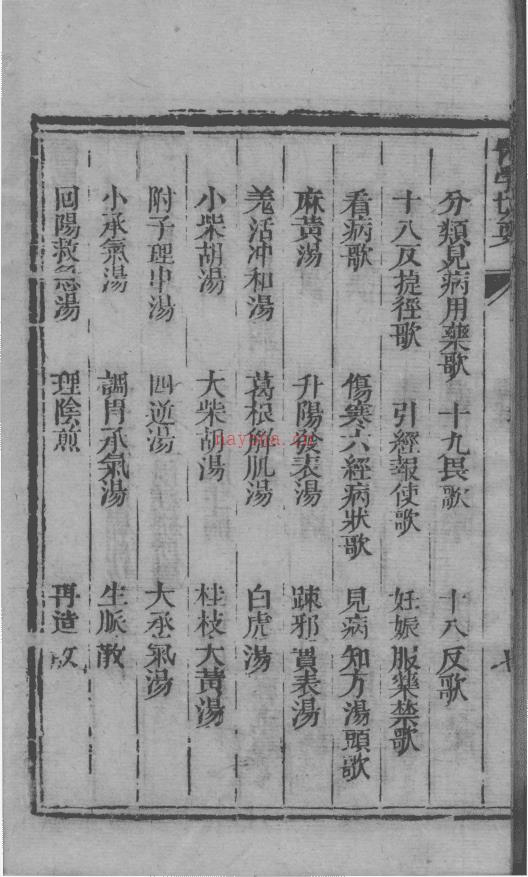 分類見病用藥歌 十九畏歌 十八反歌
十八反捷徑歌 引經報使歌 妊娠服藥禁歌
看病歌 傷寒六經病狀歌 見病知方湯頭歌
麻黃湯 升陽發表湯 疎邪實表湯
羗活冲和湯 葛根解肌湯 白虎湯
小柴胡湯 大柴胡湯 桂枝大黃湯
附子理中湯 四逆湯 大承氣湯
小承氣湯 調胃承氣湯 生脈散
回陽救急湯 理陰煎 再造散
nayona.cn